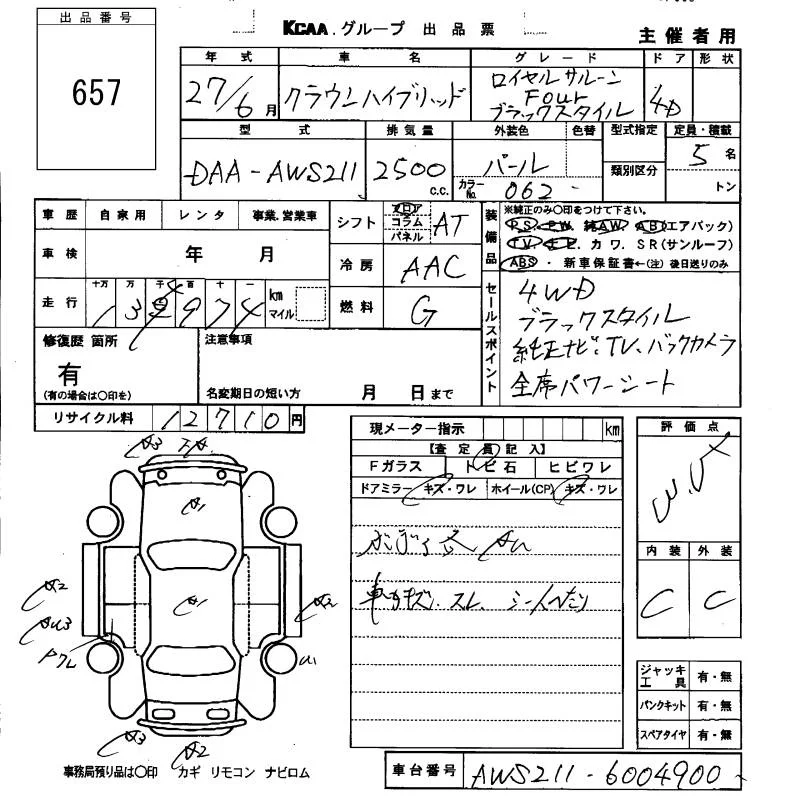 出品番号
657
KCAA.グループ 出品票
主催者用
年式 車名 グレード ドア 形状
27/6月 クラウンハイブリッド ロイヤルサルーン Four ブラックスタイル 4D
型式 排気量 外装色 色替 型式指定 定員・積載
DAA-AWS211 2500 c.c. パール
カラーNo. 062
類別区分
5名
トン
車歴 自家用 レンタ 事業.営業車
車検 年 月
走行 十万 万 千 百 十 一 km マイル
シフト フロア コラム パネル AT
冷房 AAC
燃料 G
装備品
※純正のみ○印をつけて下さい。
PS. PW. 純AW. AB(エアバック)
TV. ナビ. カワ. SR(サンルーフ)
ABS・新車保証書←(注)後日送りのみ
セールスポイント
4WD
ブラックスタイル
純正ナビ、TV、バックカメラ
全席パワーシート
修復歴 箇所
有
(有の場合は○印を)
注意事項
名変期日の短い方 月 日まで
リサイクル料 12710円
現メーター指示 km
【査定員記入】
Fガラス トビ石 ヒビワレ
ドアミラー キズ・ワレ ホイール(CP) キズ・ワレ
評価点
内装 外装
C C
A3
A1
A2
A1
A2
A3
A2
ジャッキ工具 有・無
パンクキット 有・無
スペアタイヤ 有・無
事務局預り品は○印 カギ リモコン ナビロム
車台番号 AWS211-6004900